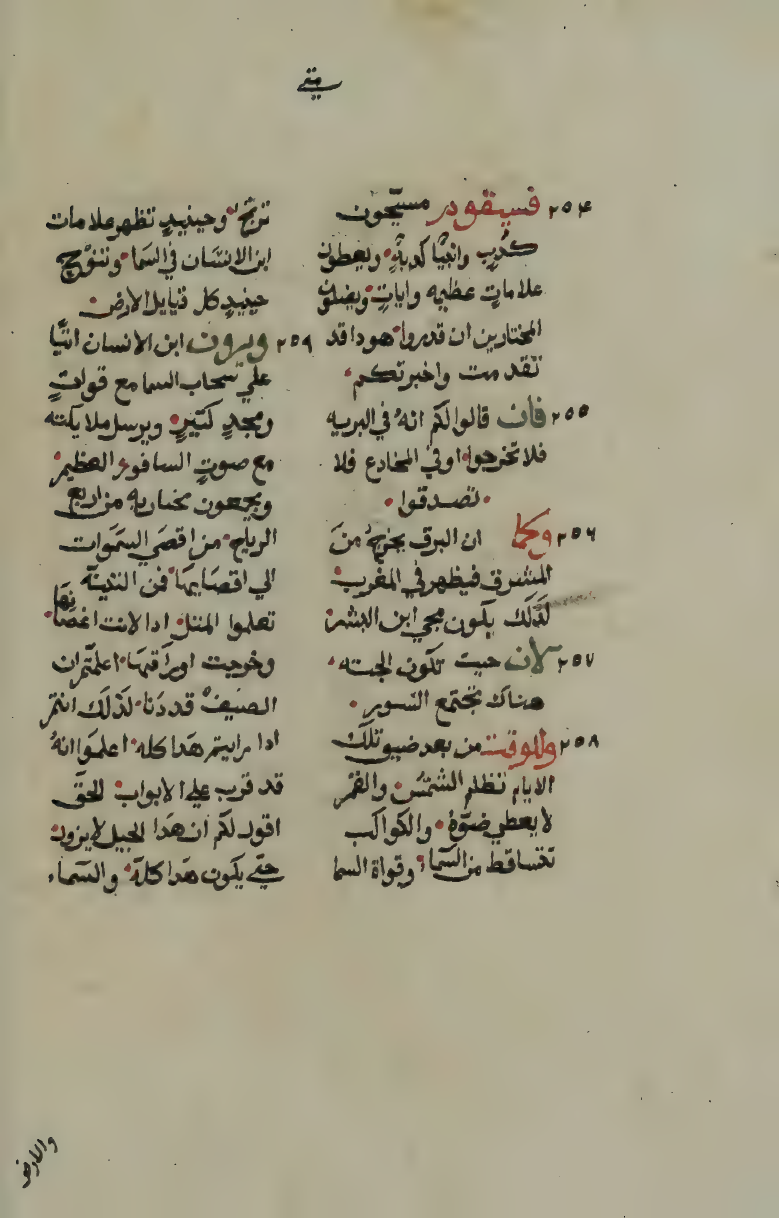 متي
٢٥٤ فسيقوم مسيحون
كدب وانبيا كدبة ويعطون
علامات عظيمه وايات ويضلون
المختارين ان قدروا هودا قد
تقدمت واخبرتكم
٢٥٥ فان قالوا لكم انه في البريه
فلا تخرجوا او في المخادع فلا
تصدقوا
٢٥٦ وكما ان البرق يخرج من
المشرق فيظهر في المغرب
كذلك يكون مجي ابن البشر
٢٥٧ لان حيت تكون الجته
هناك تجتمع النسور
٢٥٨ وللوقت من بعد ضيق تلك
الايام تظلم الشمس والقمر
لا يعطي ضوه والكواكب
تتساقط من السما وقواة السما
ترتج وحينيد تظهر علامات
ابن الانسان في السما وتنوح
حينيد كل قبايل الارض
٢٥٩ ويرون ابن الانسان اتيا
علي سحاب السما مع قوات
ومجد كتير ويرسل ملايكته
مع صوت السافور العظيم
ويجمعون مختاريه من اربع
الرياح من اقصي السموات
الي اقصايها فمن التينه
تعلموا المتل ادا لانت اغصانها
وخرجت اوراقها اعلمتم ان
الصيف قد دنا لذلك انتم
ادا رايتم هدا كله اعلموا انه
قد قرب علي الابواب الحق
اقول لكم ان هدا الجيل لا يزول
حتي يكون هدا كله والسماء
والارض